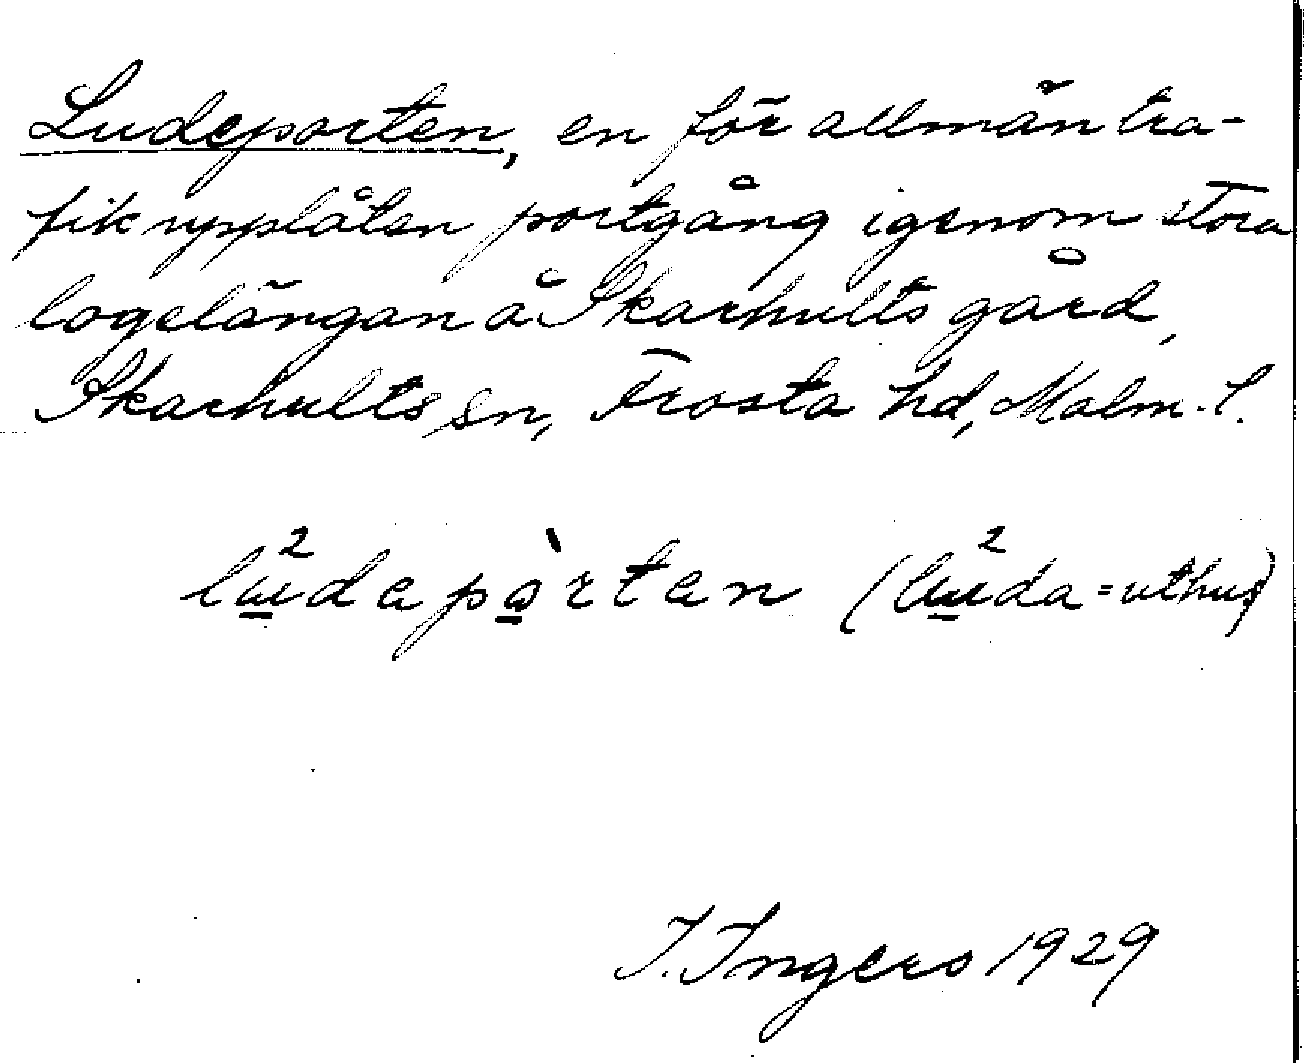 Ludeporten, en för allmän tra-
fik upplåten portgång igenom stora
logelängan å Skarhults gård,
Skarhults sn, Frosta hd, Malm. l.
lu²depòrten (lu²da = uthus)
I. Ingers 1929